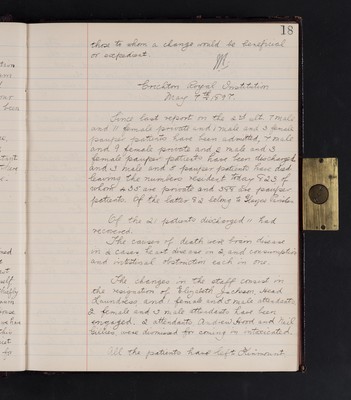 18
those to whom a change would be beneficial
or expedient.
Crichton Royal Institution
May 7th 1897
Since last report on the 2d ult. 7 male
and 11 female private and 1 male and 3 female
pauper patients have been admitted, 7 male
and 9 female private and 2 male and 3
female pauper patients have been discharged
and 3 male and 5 pauper patients have died
leaving the numbers resident today 823 of
whom 435 are private and 388 are pauper
patients. Of the latter 82 belong to
Of the 21 patients discharged 11 had
recovered.
The causes of death were brain disease
in 4 cases heart disease in 2 and consumption
and intestinal obstruction each in one.
The changes in the staff consist in
the resignation of Elizabeth Jackson, head
Laundress and 1 female and 3 male attendants.
2 female and 3 male attendants have been
engaged. 2 attendants Andrew Hood and
Gillies, were dismissed for coming in intoxicated.
All the patients have left